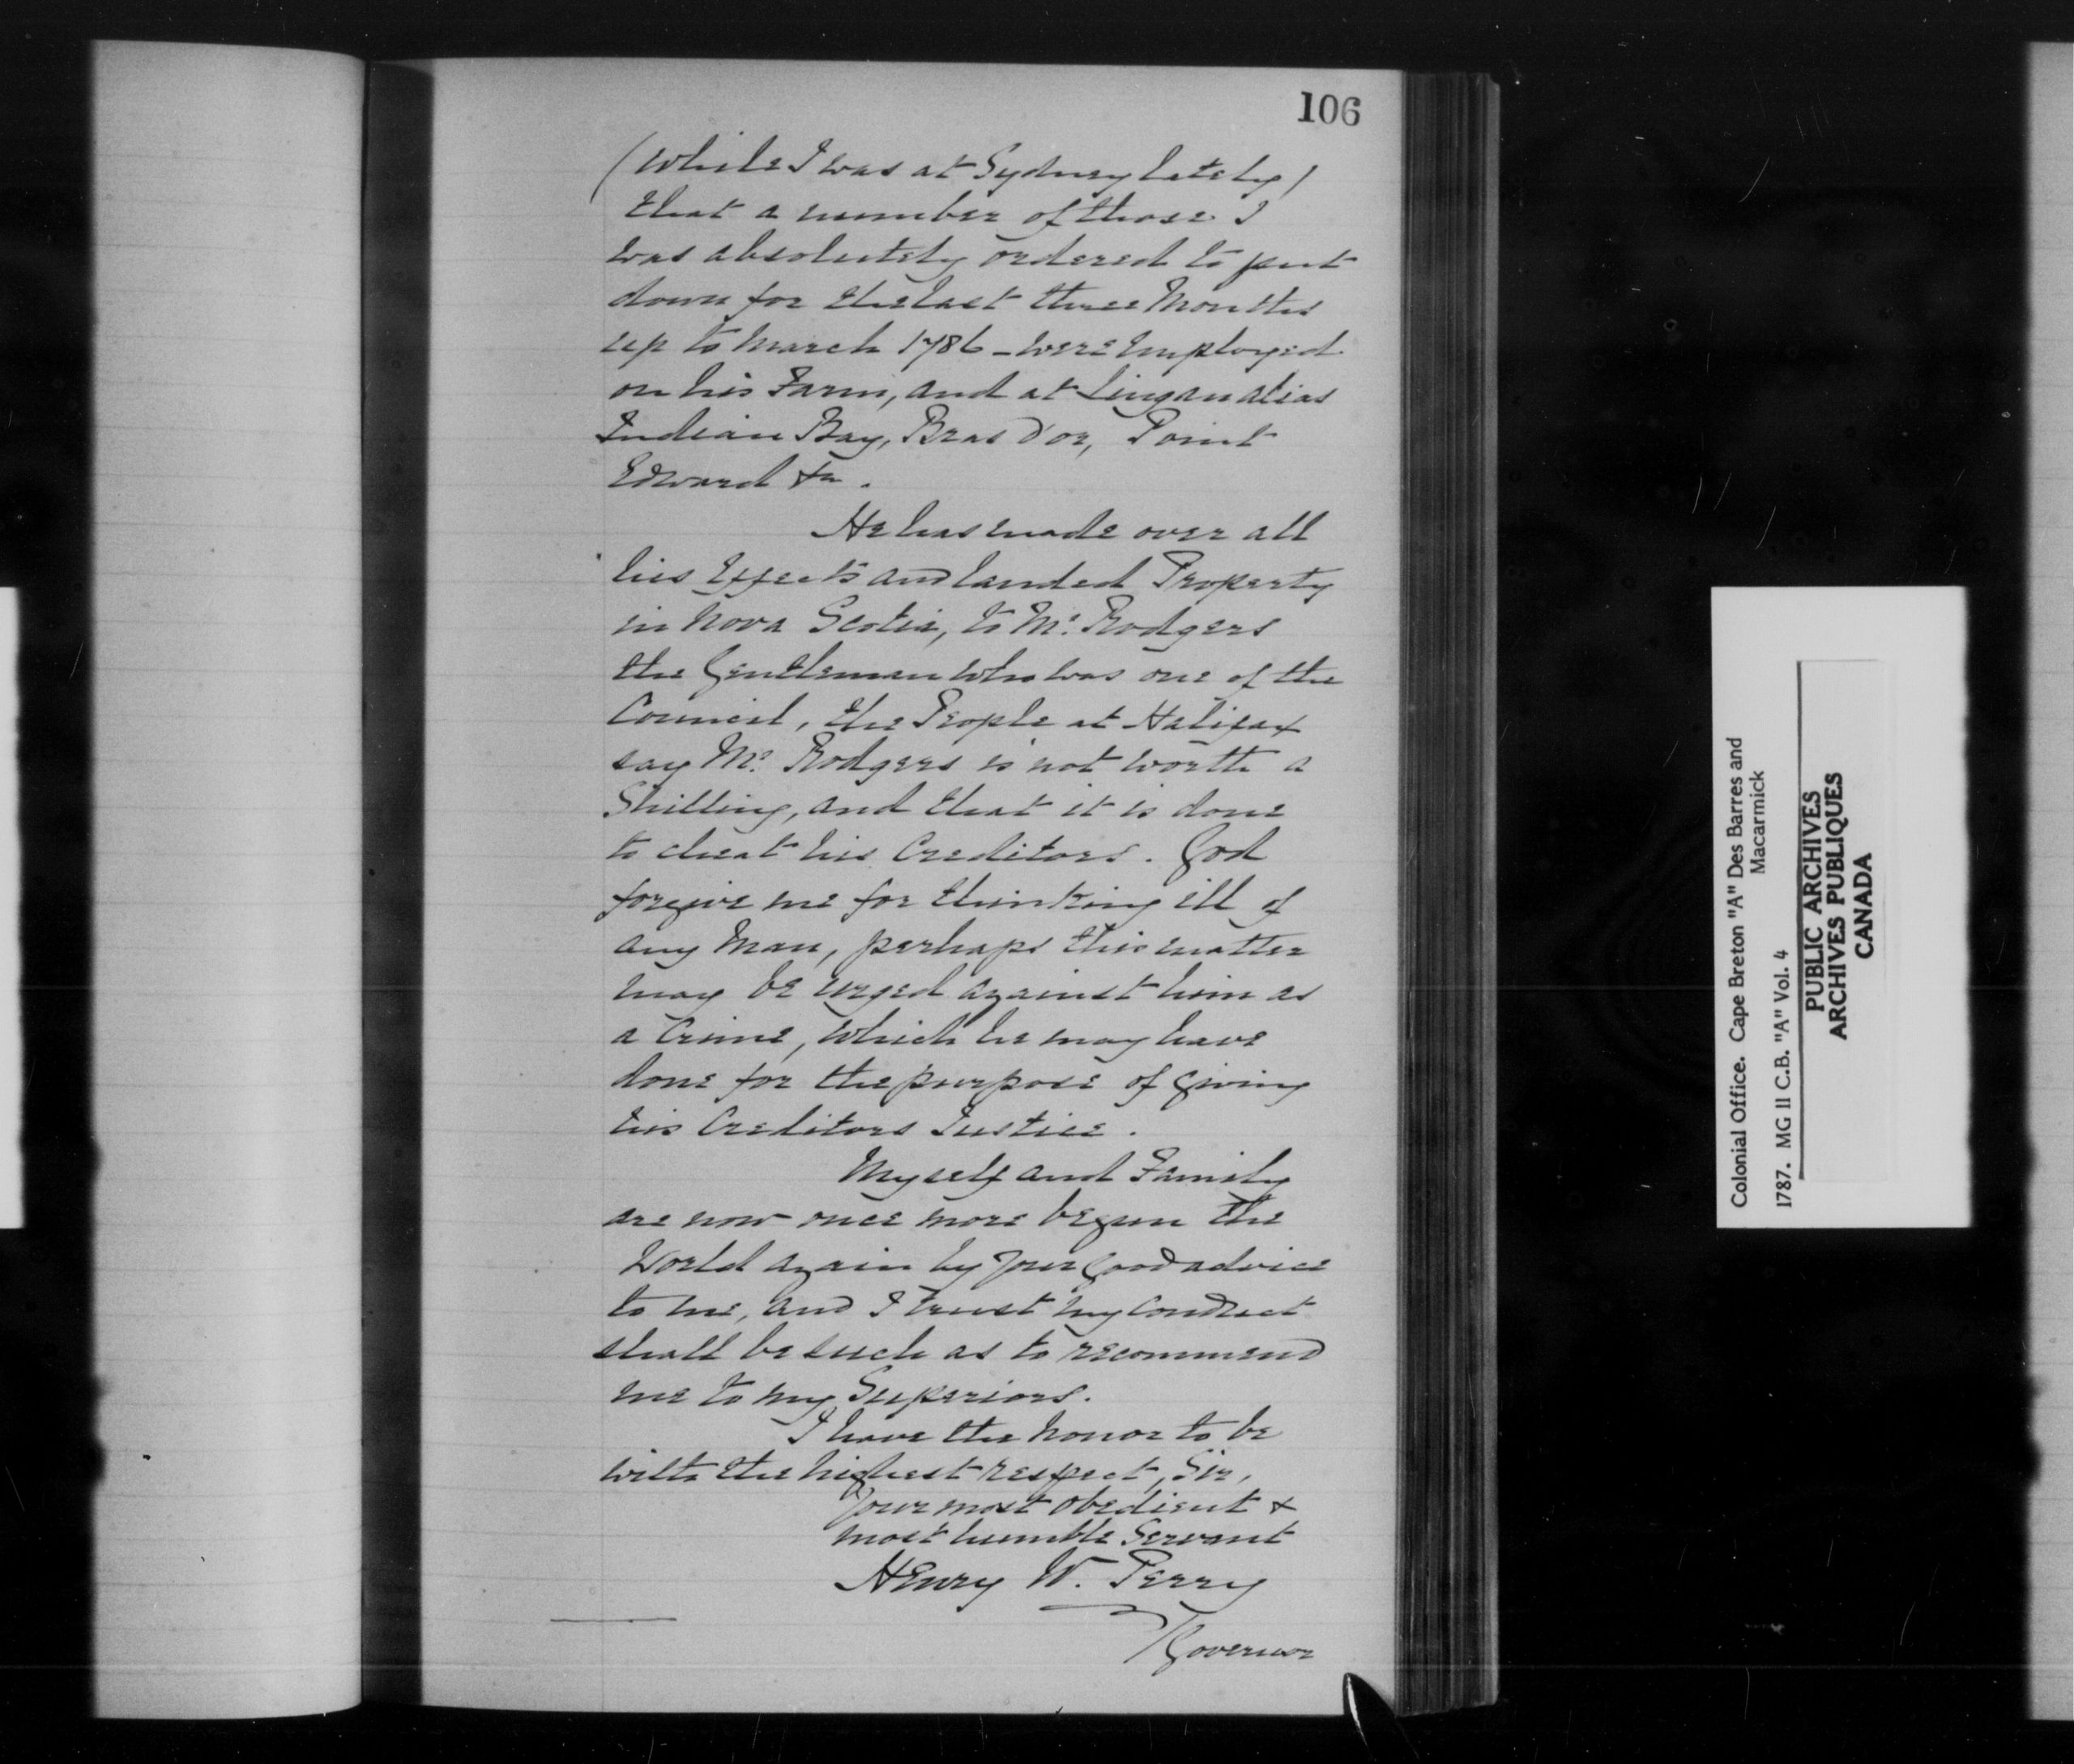 106
(while I was at Sydney lately)
that a number of those I
was absolutely ordered to put
down for the last three Months
up to March 1786 - were employed
on his Farm, and at Lingan alias
Indian Bay, Bras D'or, Point
Edward &c.
He has made over all
his Effects and landed Property
in Nova Scotia, to Mr. Rodgers
the Gentleman who was one of the
Council, the People at Halifax
say Mr. Rodgers is not worth a
Shilling, and that it is done
to cheat his Creditors. God
forgive me for thinking ill of
any Man, perhaps this matter
may be urged against him as
a Crime, which he may have
done for the purpose of giving
his Creditors Justice.
Myself and Family
are now once more begun the
World again by your good advice
to me, and I trust my conduct
shall be such as to recommend
me to my Superiors.
I have the honor to be
with the highest respect, Sir,
Your most obedient &
most humble Servant
Henry W. Perry
/Governor
Colonial Office. Cape Breton "A" Des Barres and
Macarmick
1787. MG 11 C.B. "A" Vol. 4
PUBLIC ARCHIVES
ARCHIVES PUBLIQUES
CANADA